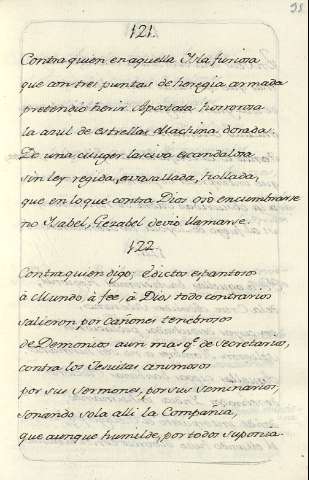 98
121
Contra quien en aquella Isla furiosa
que con tres puntas de heregia armada
pretendio herir Apostata horrorosa
la azul de estrellas Machina dorada.
De una Muger lasciva escandalosa
sin ley regida, avasallada, hollada,
que en lo que contra Dios osò encumbrarse
no Isabel, Gezabel devio llamarse.
122
Contra quien digo, edictos espantosos
à Mundo, à fee, à Dios todo contrarios
salieron por cañones tenebrosos
de Demonios aun mas q.e de Secretarios,
contra los Jesuitas animosos
por sus sermones, por sus seminarios,
sonando sola alli la Compañia,
que aunque humilde, por todos suponia.